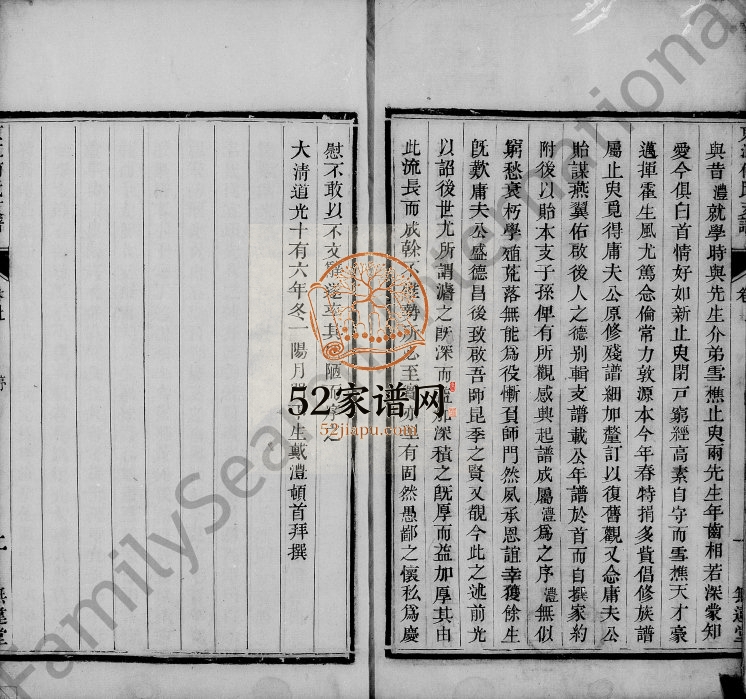 與昔灃就學時與先生介弟雪樵止臾兩先生年齒相若深蒙知
愛今俱白首情好如新止臾閉戸窮經高素自守而雪樵天才豪
邁揮霍生風尤篤念倫常力敦源本今年春特捐多貲倡修族譜
屬止臾覓得庸夫公原修殘譜細加釐訂以復舊觀又念庸夫公
貽謀燕翼佑啟後人之德別輯支譜載公年譜於首而自撰家約
附後以貽本支子孫俾有所觀感興起譜成屬灃為之序灃無似
窮愁衰朽學殖荒落無能為役慚負師門然夙承恩誼幸獲餘生
旣歎庸夫公盛德昌後致啟吾師昆季之賢又覩今此之述前光
以詔後世尤所謂濬之旣深而益深積之旣厚而益加厚其由
此流長而成榦不勢所必至有固然愚鄙之懷私為慶
慰不敢以不文辭遂其陋序之
大清道光十有六年冬一陽月生戴灃頓首拜撰
無逸堂
52家谱网
52jiapu.com
FamilySearch International